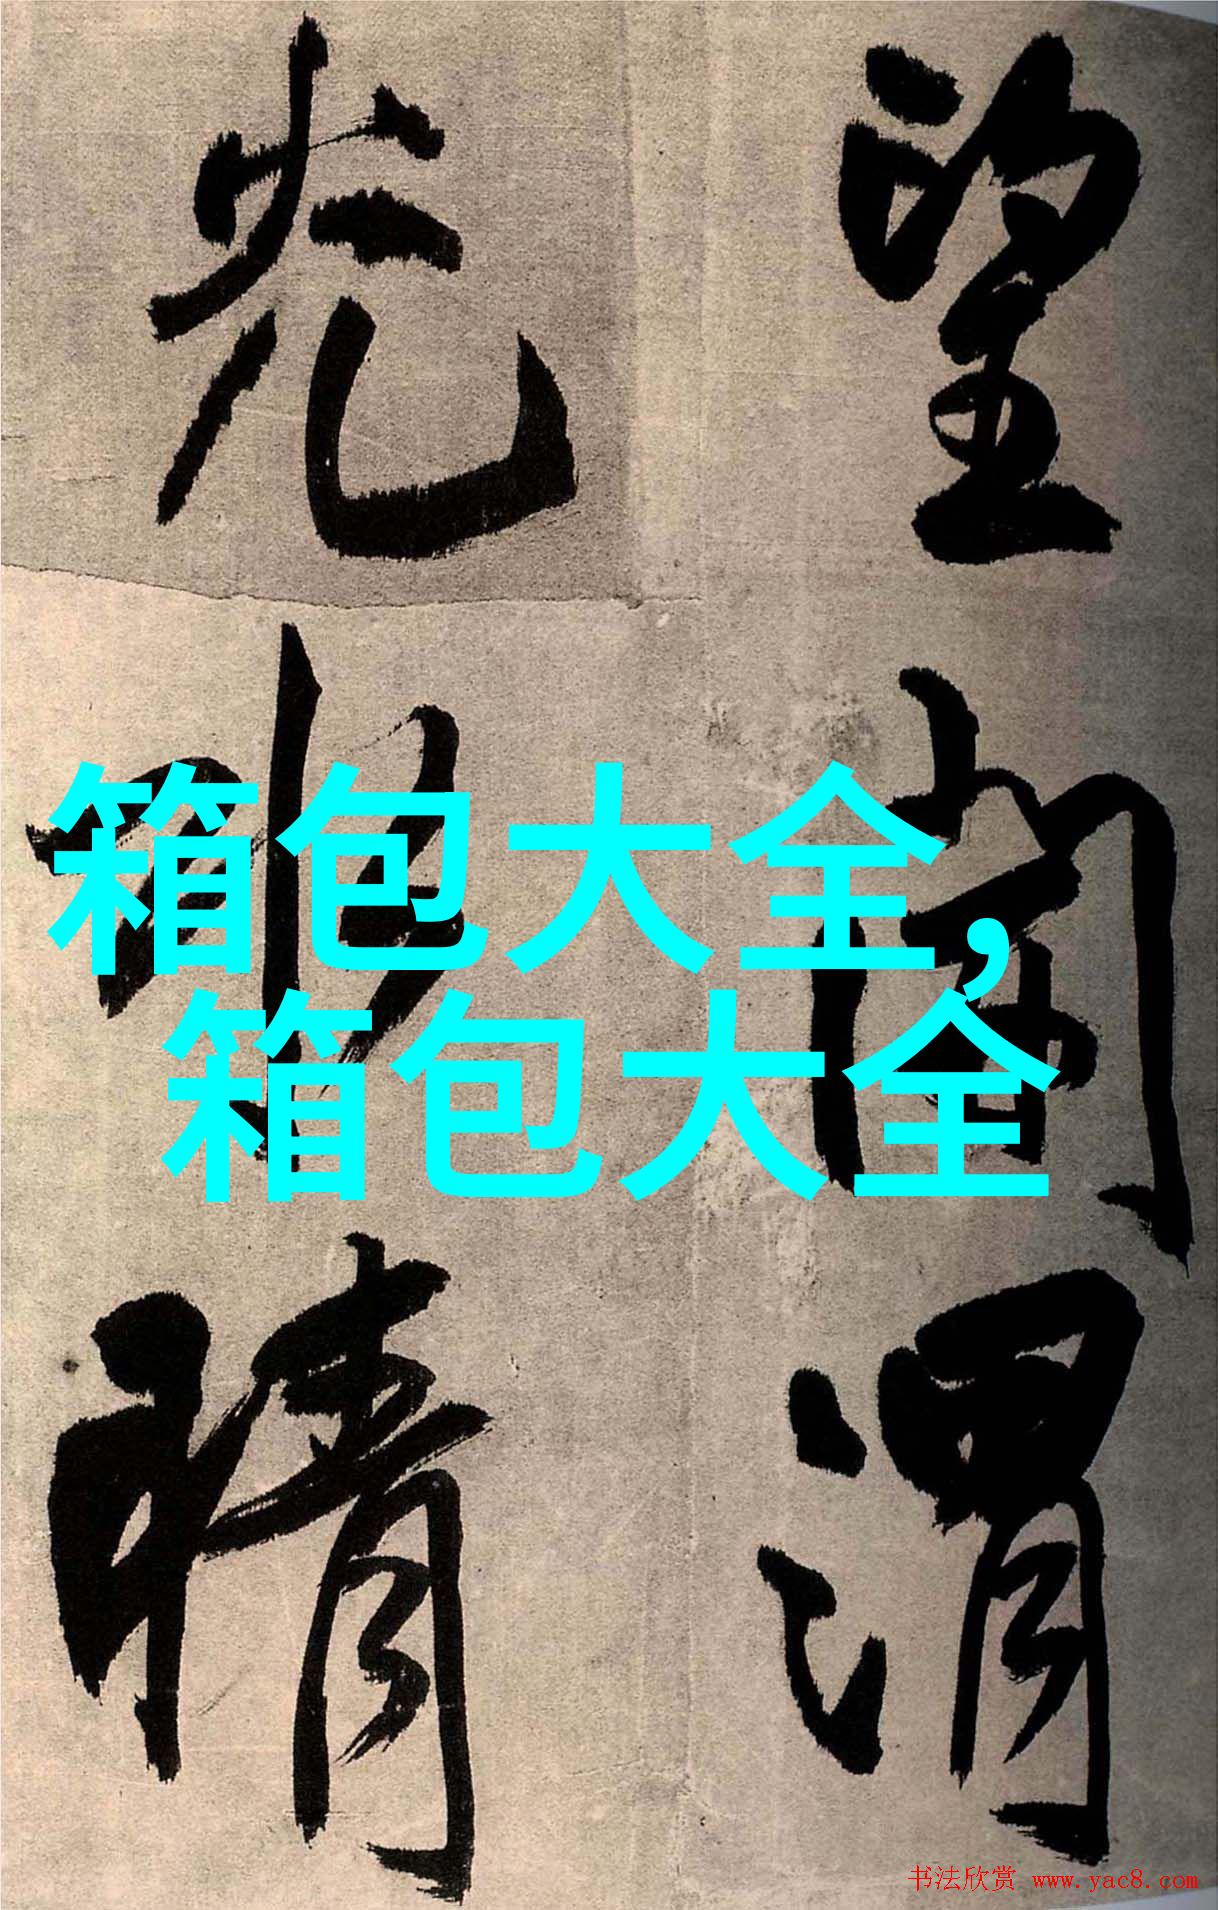 望阁渭
光明晴
箱包大全，
箱包大全
书法欣赏 www.yac8.com